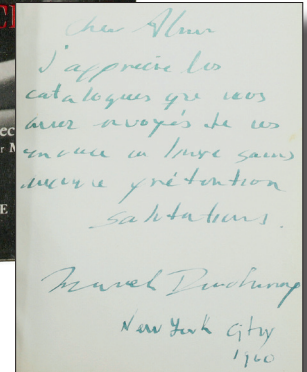 Cher
J'apprécie les
catalogues que vous
avez envoyés Je vous
envoie ce livre sans
aucune prétention
salutations.
Marcel Duchamp
New York City
1960